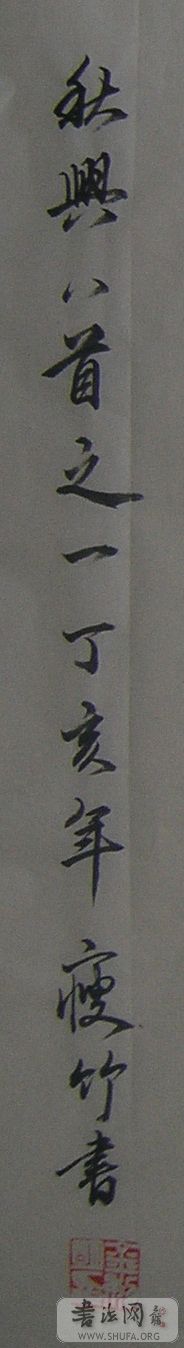 秋興八首之一丁亥年瘦竹書
书法网
WWW.SHUFA.ORG